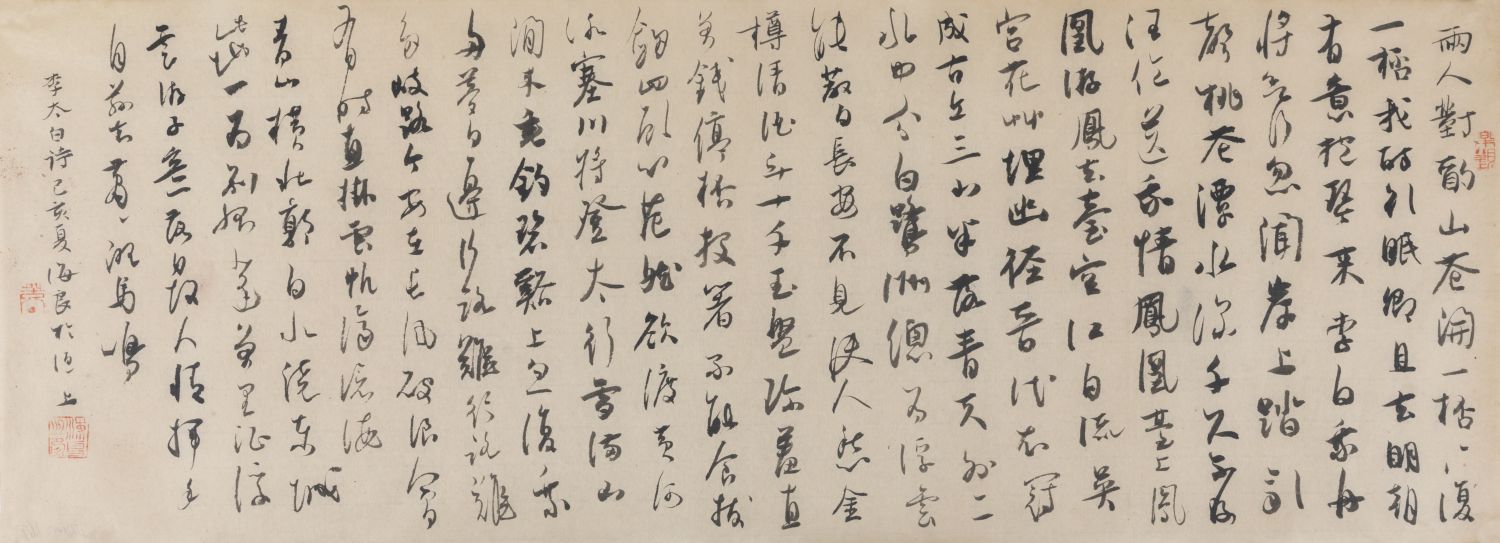 兩人對酌山花開一杯〻復
一杯我醉欲眠卿且去明朝
有意抱琴來李白乘舟
將欲行忽聞岸上踏歌
聲桃花潭水深千尺不及
汪倫送我情鳳凰臺上鳳
凰游鳳去臺空江自流吳
宮花艸埋幽徑晉代衣冠
成古丘三山半落青天外二
水中分白鷺洲總為浮雲
能蔽日長安不見使人愁金
樽清酒斗十千玉盤珍羞直
萬錢停杯投箸不能食拔
劍四顧心茫然欲渡黃河
冰塞川將登太行雪滿山
閒來垂釣碧谿上忽復乘
舟夢日邊行路難行路難
多岐路今安在長風破浪會
有時直掛雲帆濟滄海
青山橫北郭白水繞東城
此地一為別孤蓬萬里征浮
雲游子意落日故人情揮手
自茲去蕭〻班馬鳴
李太白詩己亥夏海良於滬上